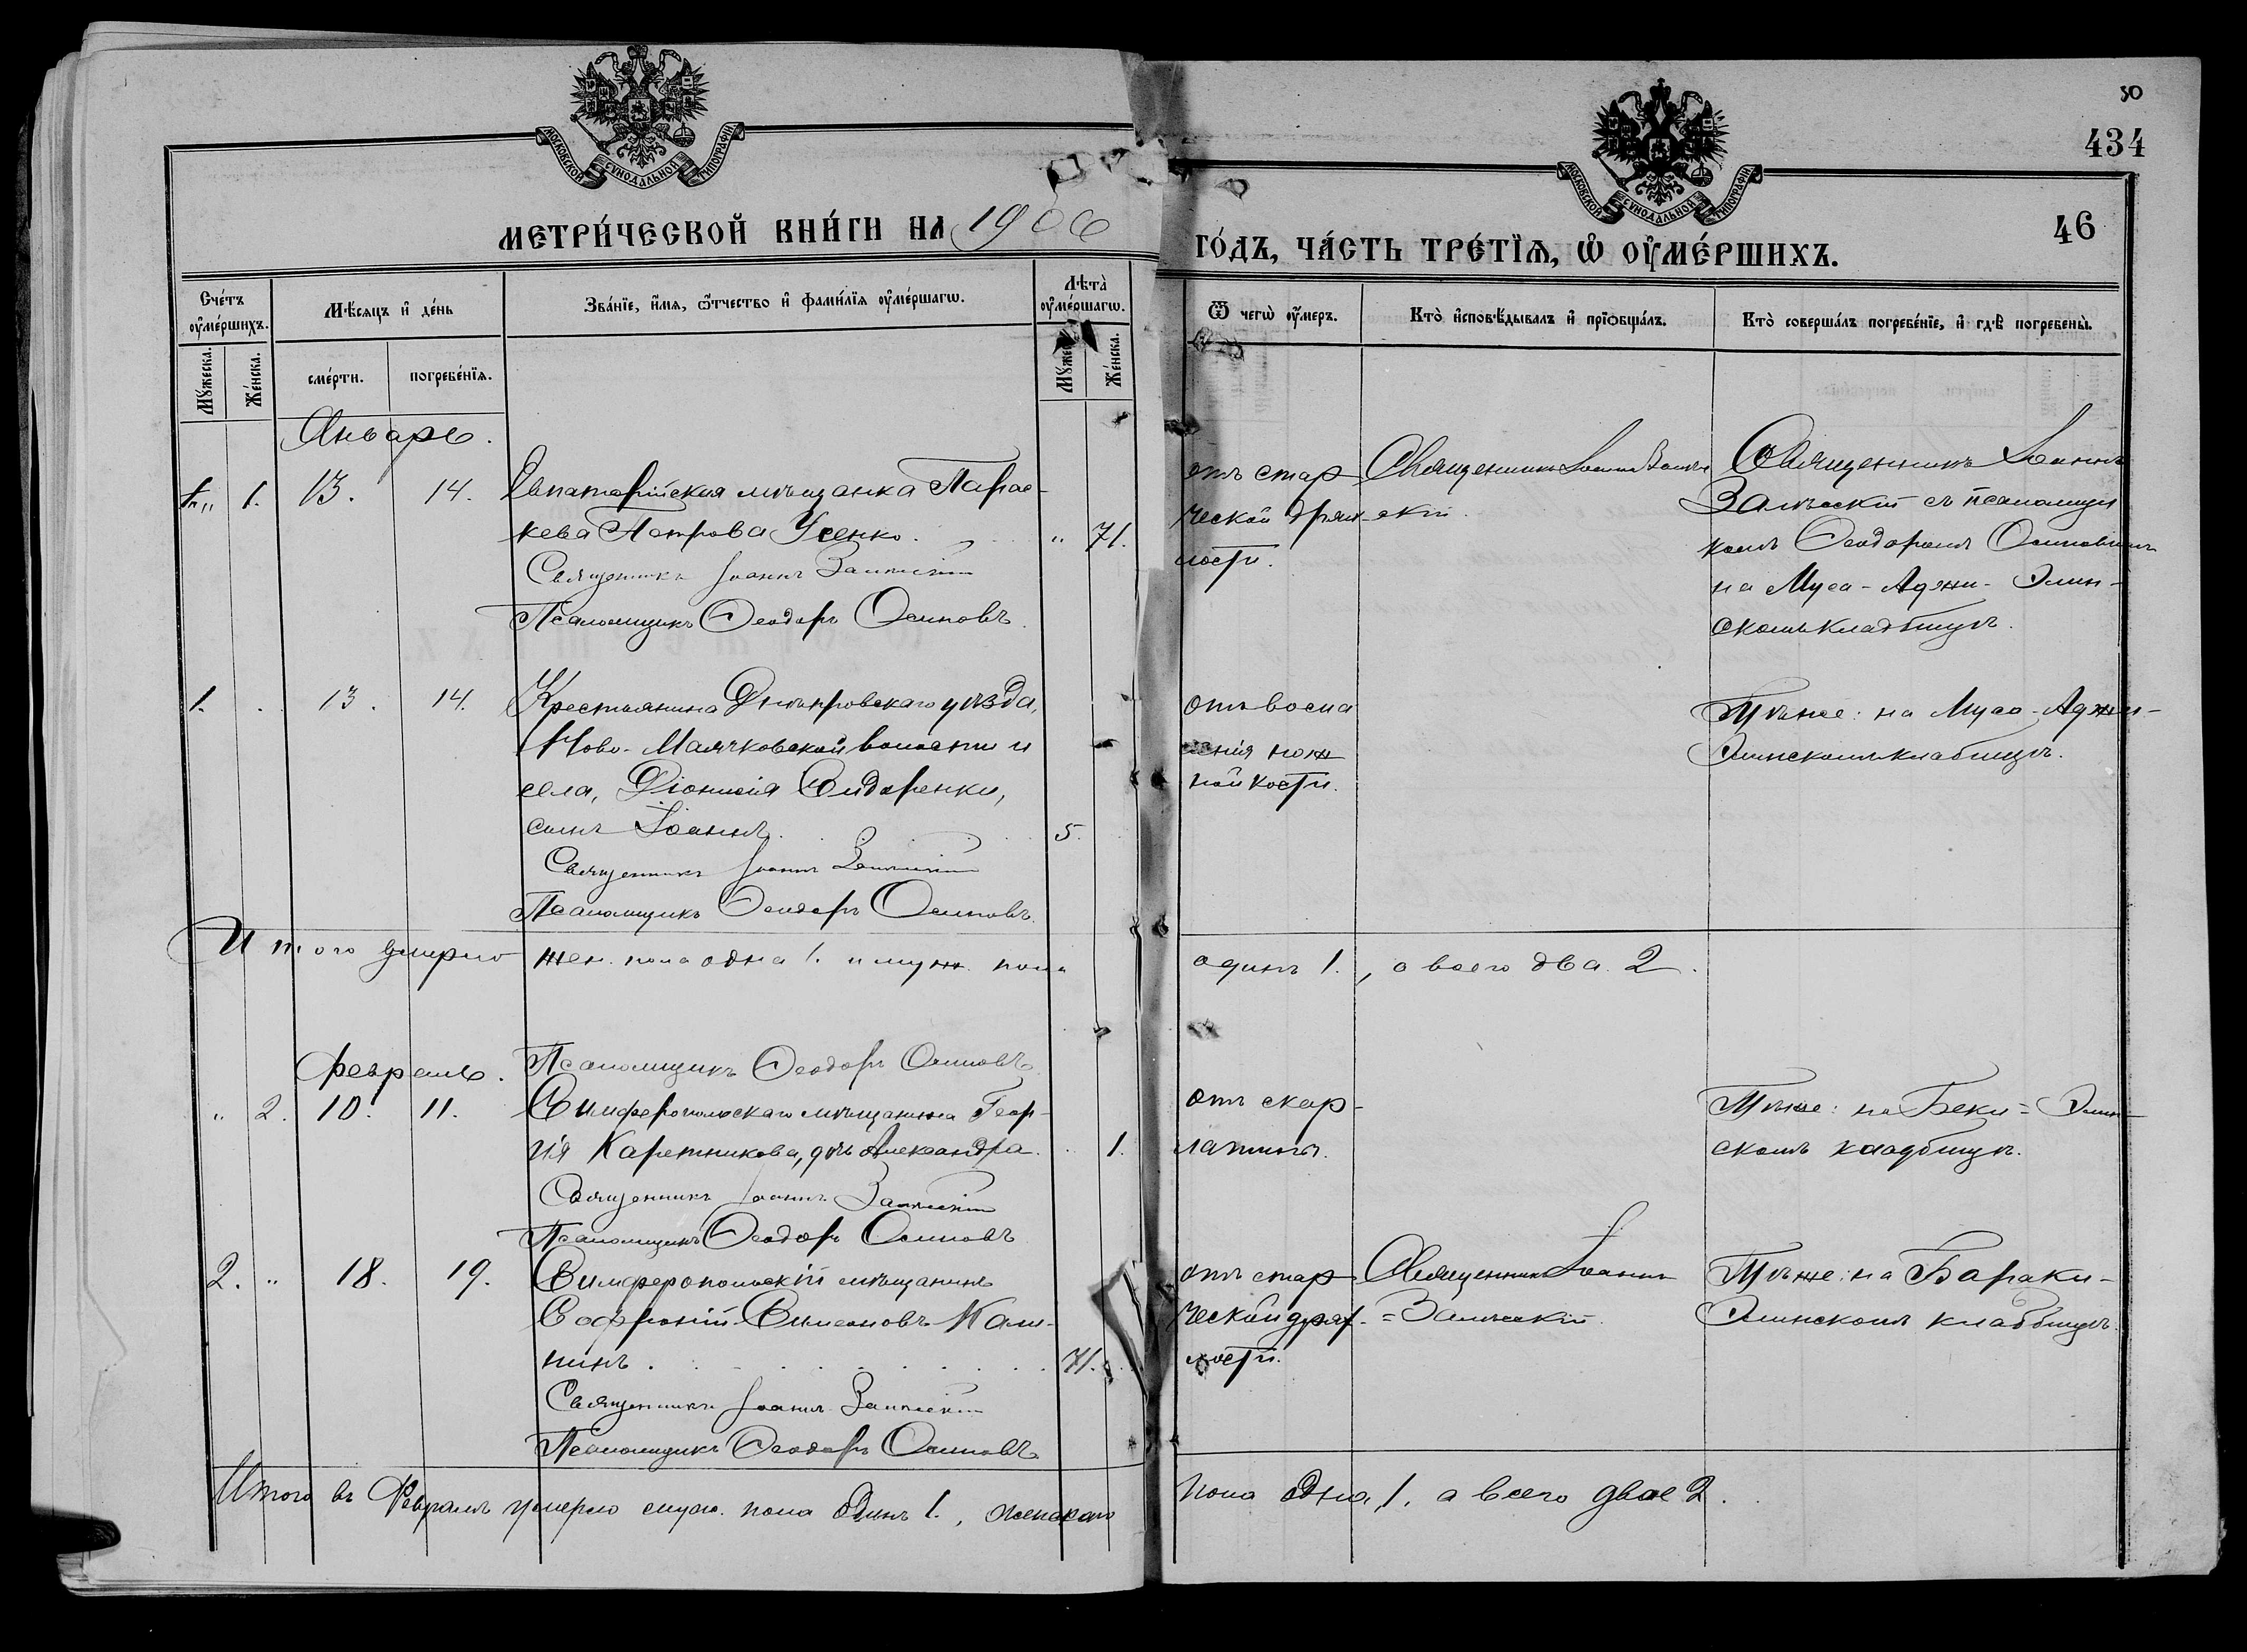 50
434
46
МОСКОВСКОЙ СѴНОДАЛЬНОЙ ТИПОГРАФІИ
МОСКОВСКОЙ СѴНОДАЛЬНОЙ ТИПОГРАФІИ
МЕТРИ́ЧЕСКОЙ КНИ́ГИ НА 1906
ГО́ДЪ, ЧА́СТЬ ТРЕ́ТІѦ, Ѽ ОУ҆МЕ́РШИХЪ.
Сче́тъ оу҆ме́ршихъ.
Мꙋ́жеска.
Же́нска.
Мѣ́сяцъ и҆ де́нь
сме́рти.
погребе́нїѧ.
Зва́нїе, и҆́мѧ, ѻ҆́тчество и҆ фами́лїѧ оу҆ме́ршагѡ.
Лѣта̀ оу҆ме́ршагѡ.
Мꙋ́жес
Же́нска.
Ѿ чегѡ̀ оу҆́меръ.
Кто̀ и҆сповѣ́дывалъ и҆ прїѡбща́лъ.
Кто̀ соверша́лъ погребе́нїе, и҆ гдѣ̀ погребены̀.
Январь.
1. 13. 14. Евпаторійская мѣщанка Парас-
кева Петрова Усенко. " 71.
Священникъ Іоаннъ Залѣсскій
Псаломщикъ Ѳеодоръ Осиповъ.
отъ стар
ческой дрях
лости.
Священникъ Іоаннъ Залѣс
скій.
Священникъ Іоаннъ
Залѣсскій съ псаломщи
комъ Ѳеодоромъ Осиповымъ
на Муса-Аджи-Элин-
скомъ кладбищѣ.
1. . 13. 14. Крестьянина Днѣпровскаго уѣзда,
Ново-Маячковской волости и
села, Діонисія Сидоренки,
сынъ Іоаннъ. 5.
Священникъ Іоаннъ Залѣсскій
Псаломщикъ Ѳеодоръ Осиповъ.
отъ воспа
ленія нож
ной кости.
Тѣ же: на Муса-Аджи-
Элинскомъ кладбищѣ.
Итого умерло жен. пола одна 1. и муж. пола
одинъ 1., а всего два 2.
Псаломщикъ Ѳеодоръ Осиповъ
Февраль.
" 2. 10. 11. Симферопольскаго мѣщанина Геор-
гія Каретникова, дочь Александра. 1.
Священникъ Іоаннъ Залѣсскій
Псаломщикъ Ѳеодоръ Осиповъ
отъ скар-
латины.
Тѣ же: на Беки=Элин-
скомъ кладбищѣ.
2. " 18. 19. Симферопольскій мѣщанинъ
Софроній Симеоновъ
нинъ. 71.
Священникъ Іоаннъ Залѣсскій
Псаломщикъ Ѳеодоръ Осиповъ
отъ стар
ческой дрях-
лости.
Священникъ Іоаннъ
=Залѣсскій.
Тѣ же: на Бараки-
Элинскомъ кладбищѣ.
Итого въ Февралѣ умерло муж. пола одинъ 1., женскаго
пола одна 1. а всего двое 2.